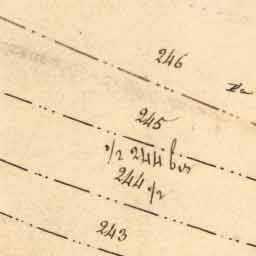 246
245
1/2 244 bis
244 1/2
243